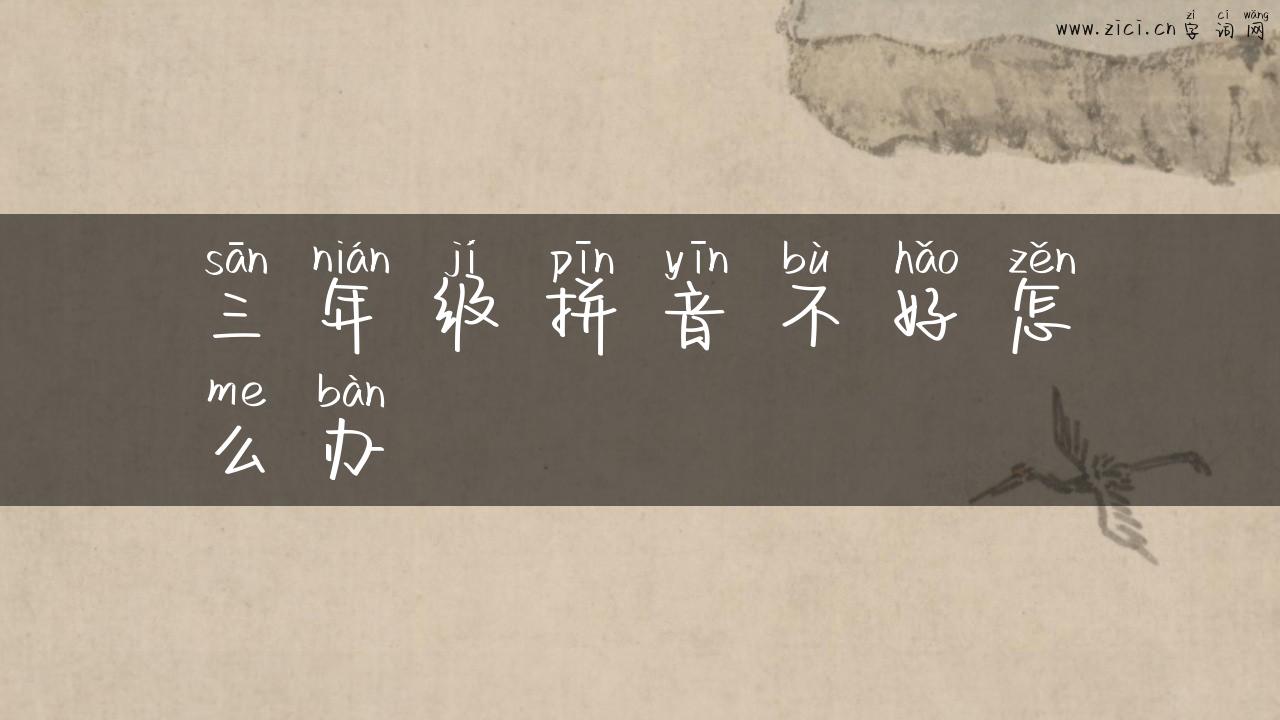 zì cí wǎng
www.zici.cn 字词网
sān nián jí pīn yīn bù hǎo zěn
三年级拼音不好怎
me bàn
么办